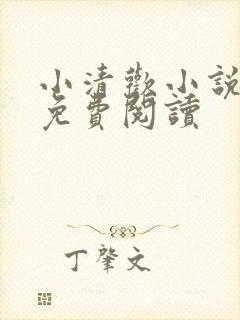 小清歡小說
免費閱讀
丁肇文